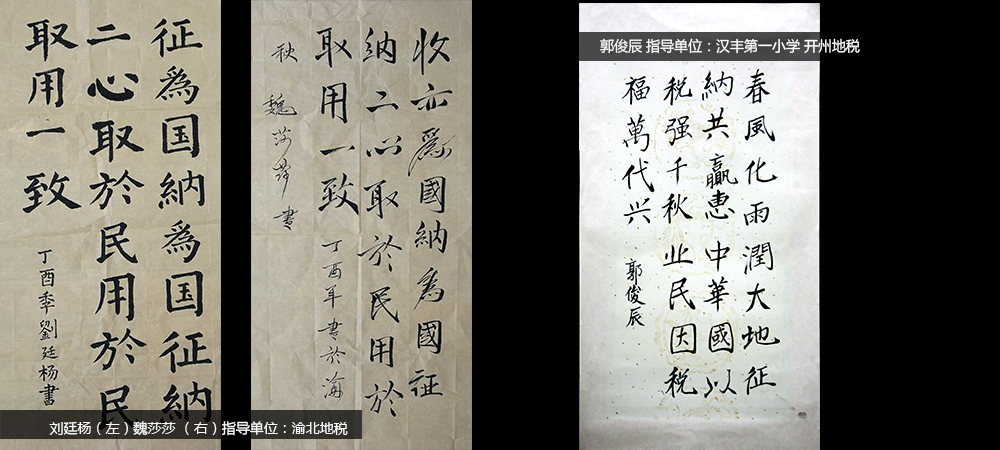 征為国納為国征納
二心取於民用於民
取用一致
丁酉季劉廷杨書
刘廷杨（左）魏莎莎（右）指导单位：渝北地税
收亦為國納為國征
纳二心取於民用於
取用一致 丁酉年書於渝
秋 魏莎莎書
郭俊辰 指导单位：汉丰第一小学 开州地税
春風化雨潤大地征
納共贏惠中華國以
税强千秋业民因税
福萬代兴
郭俊辰